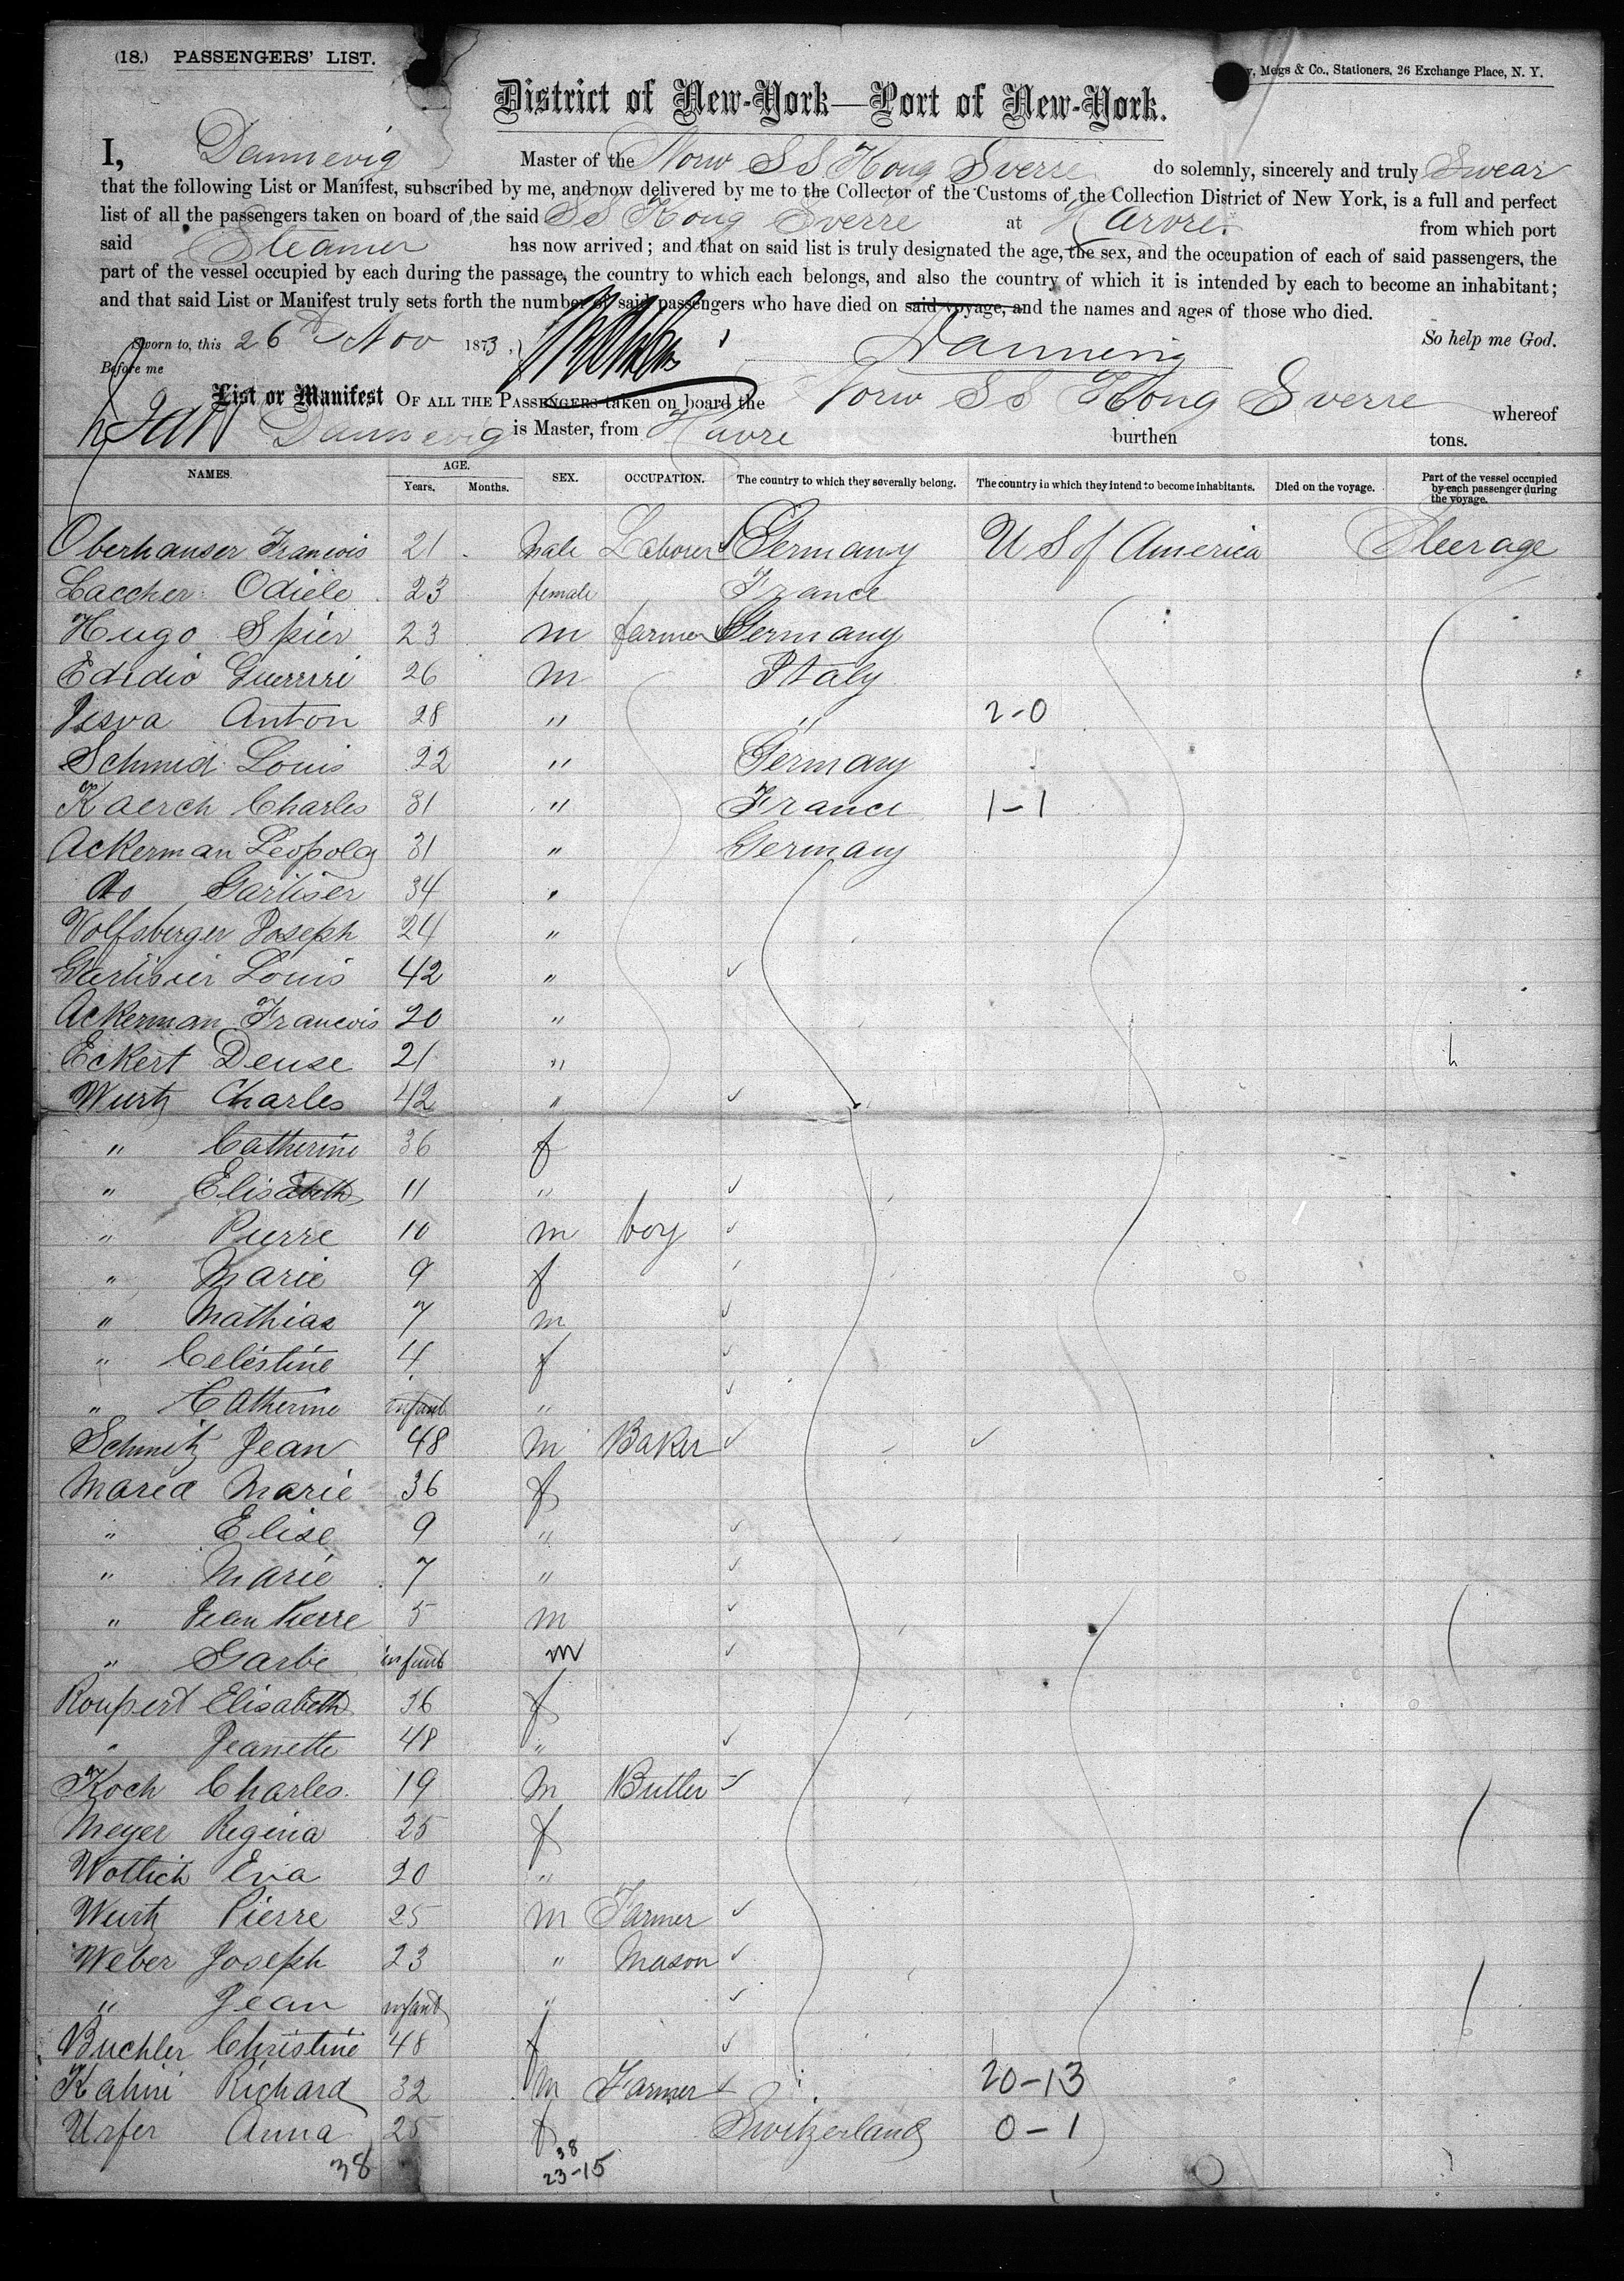 (18.) PASSENGERS' LIST.
Megs & Co., Stationers, 26 Exchange Place, N. Y.
District of New-York—Port of New-York.
I, Dannevig Master of the Norw SS Kong Sverre do solemnly, sincerely and truly Swear
that the following List or Manifest, subscribed by me, and now delivered by me to the Collector of the Customs of the Collection District of New York, is a full and perfect
list of all the passengers taken on board of the said SS Kong Sverre at Harvre. from which port
said Steamer has now arrived; and that on said list is truly designated the age, the sex, and the occupation of each of said passengers, the
part of the vessel occupied by each during the passage, the country to which each belongs, and also the country of which it is intended by each to become an inhabitant;
and that said List or Manifest truly sets forth the number of said passengers who have died on said voyage, and the names and ages of those who died.
Sworn to, this 26 Nov 1873, Dannevig So help me God.
Before me
List or Manifest OF ALL THE PASSENGERS taken on board the Norw SS Kong Sverre whereof
Dannevig is Master, from Havre burthen tons.
NAMES. AGE. Years. Months. SEX. OCCUPATION. The country to which they severally belong. The country in which they intend to become inhabitants. Died on the voyage. Part of the vessel occupied by each passenger during the voyage.
Oberhauser Francois 21 Male Laborer Germany U S of America Steerage
Laccher Odiele 23 female France
Hugo Spier 23 m farmer Germany
Edidio Guerrrri 26 m Italy
Jesva Anton 28 " " 2-0
Schmid Louis 22 " Germany
Kaerch Charles 31 " France 1-1
Ackerman Leopold 31 " Germany
do Gartiser 34 "
Wolfsberger Joseph 24 "
Gartisier Louis 42 "
Ackerman Francois 20 "
Eckert Dense 21 "
Wurtz Charles 42 "
" Catherine 36 f
" Elisabeth 11 "
" Pierre 10 m boy
" Marie 9 f
" Mathias 7 m
" Celéstine 4 f
" Catherine infant "
Schmitz Jean 48 m Baker
Mared Marie 36 f
" Elise 9 "
" Marie 7 "
" Jean Pierre 5 m
" Garbe infant m
Roupert Elisabeth 36 f
" Jeanette 48 "
Koch Charles 19 m Butler
Meyer Regina 25 f
Wottich Eva 20 "
Wurtz Pierre 25 m Farmer
Weber Joseph 23 " Mason
" Jean infant "
Buchler Christine 48 f
Kahni Richard 32 m Farmer 20-13
Urfer Anna 25 f Switzerland 0-1
38 38
23-15